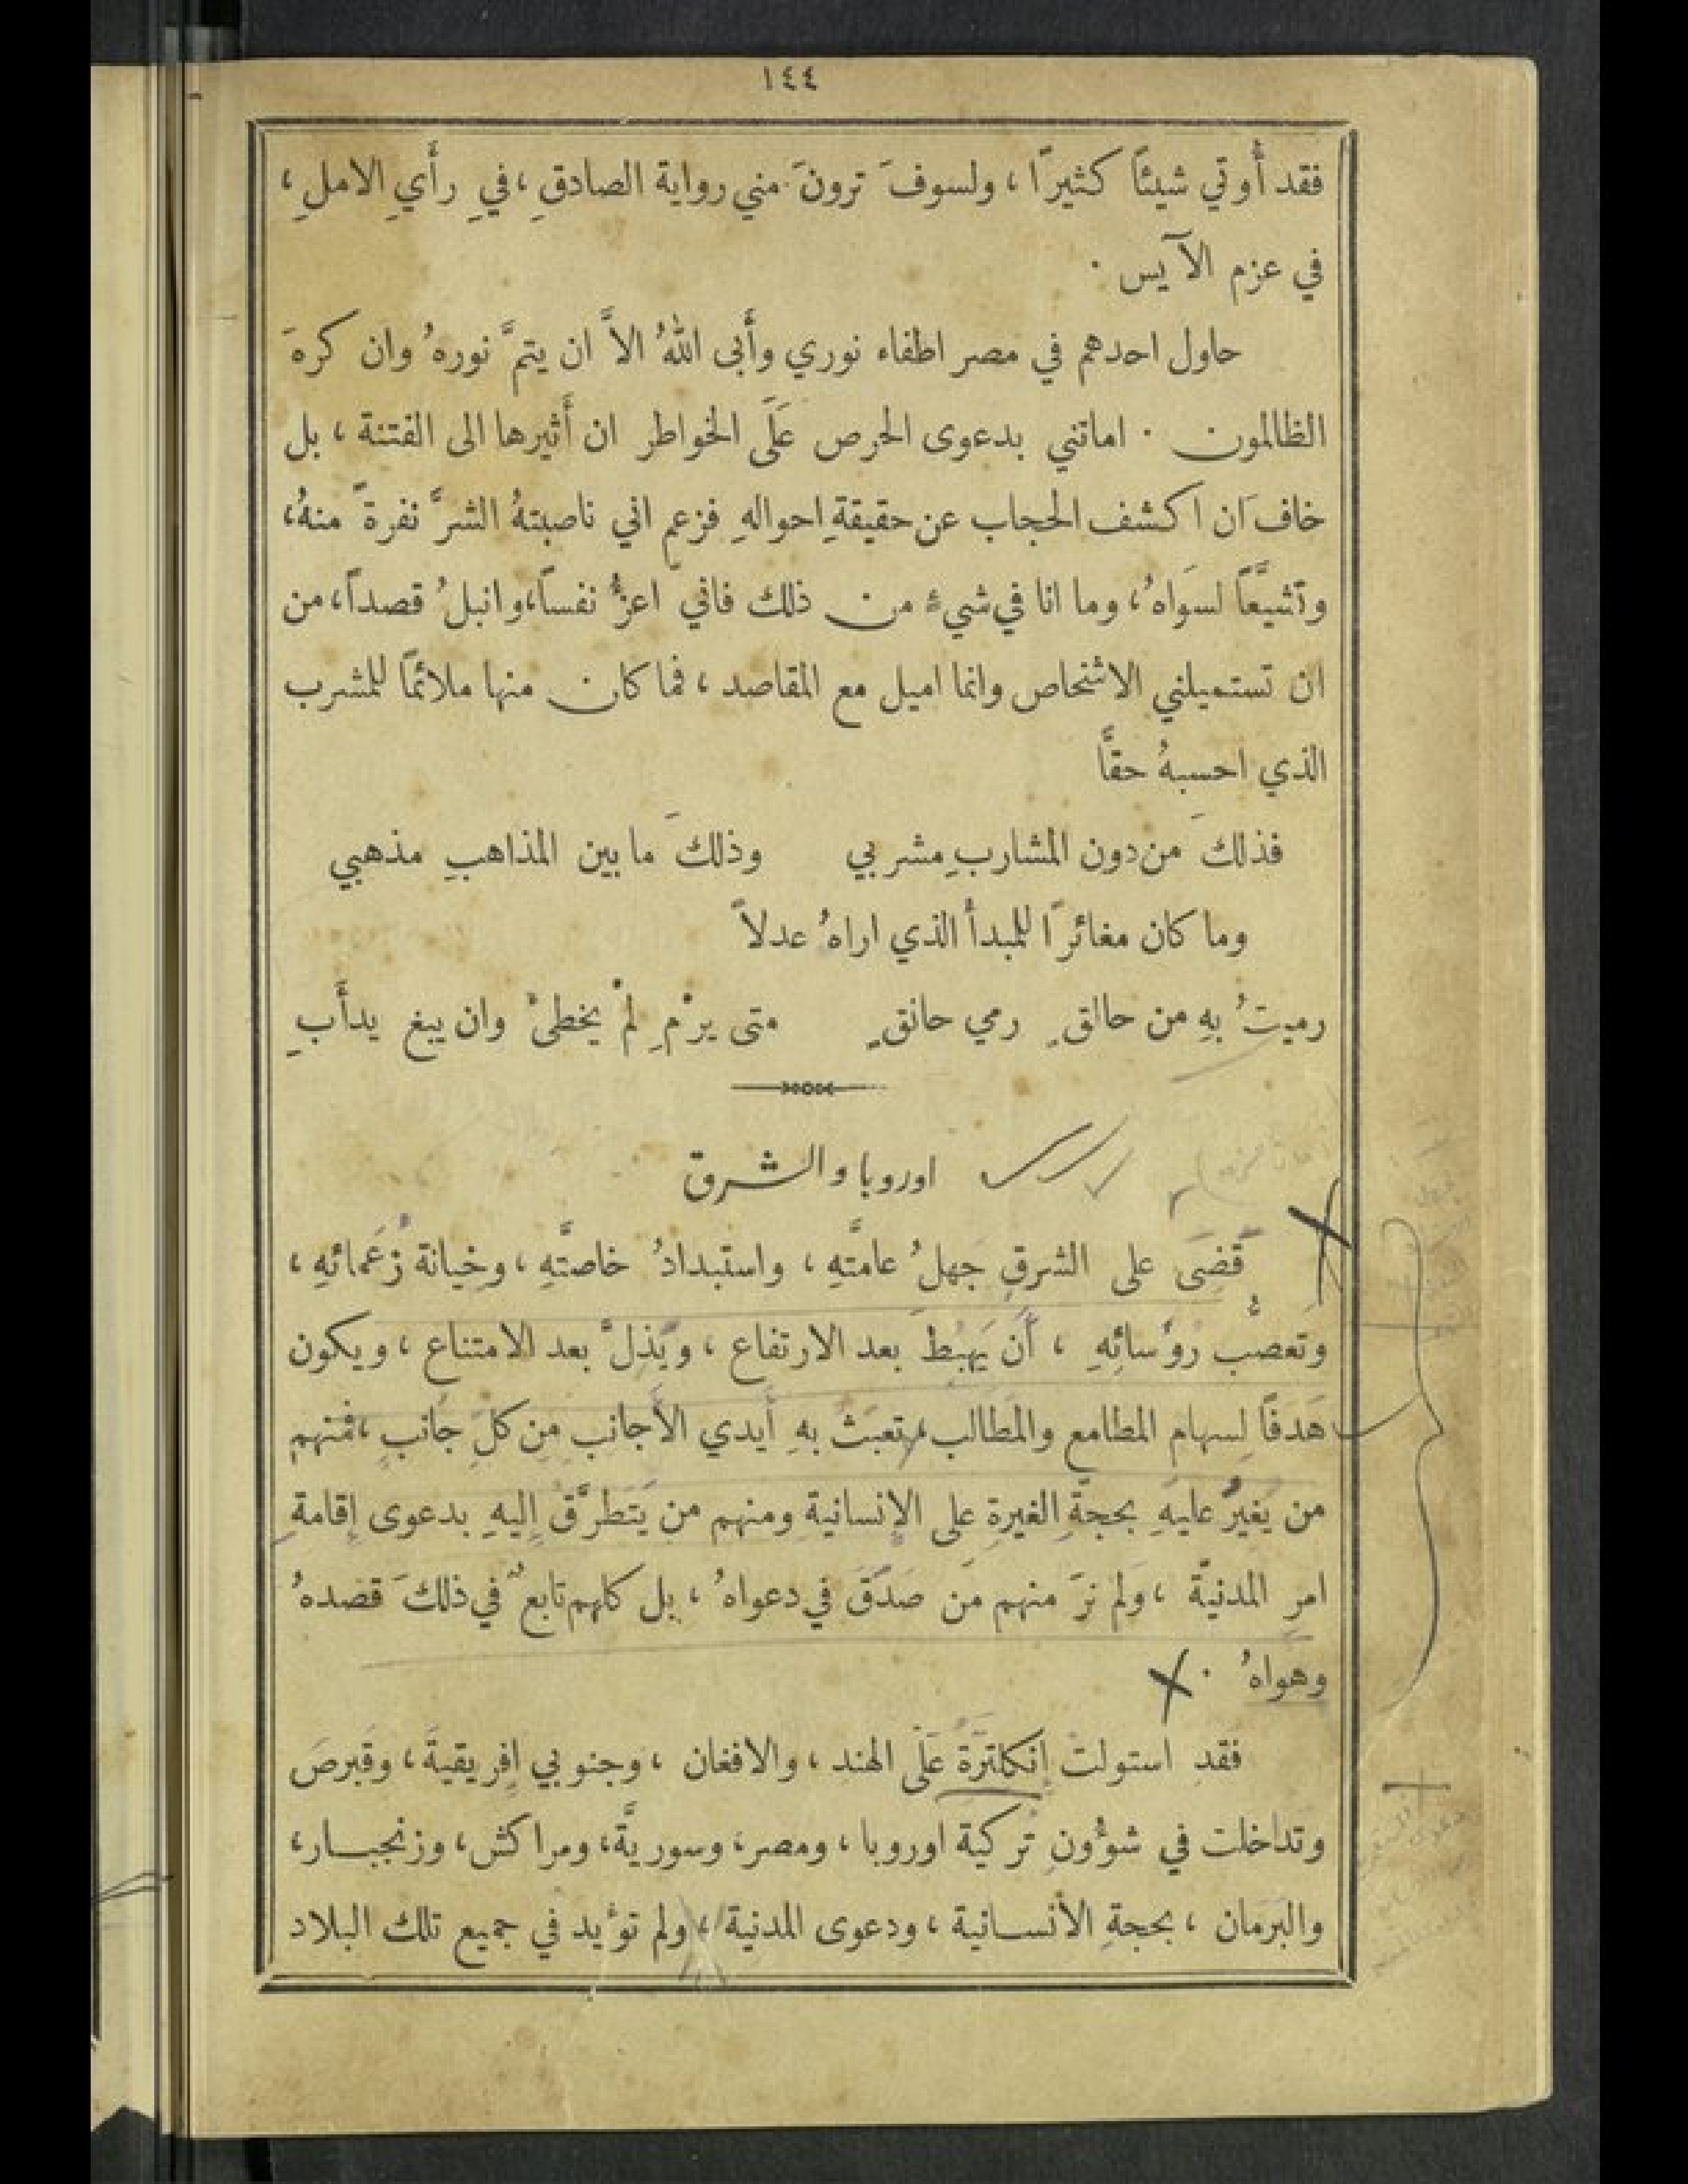 ١٤٤
فقد أُوتي شيئًا كثيرًا ، ولسوفَ ترونَ مني رواية الصادقِ ، في رأيِ الاملِ ،
في عزم الآيس .
حاول احدهم في مصر اطفاء نوري وأَبى اللهُ الاَّ ان يتمَّ نورهُ وان كرهَ
الظالمون . اماتني بدعوى الحرص عَلَى الخواطر ان أَثيرها الى الفتنة ، بل
خاف ان اكشف الحجاب عن حقيقةِ احوالهِ فزعم اني ناصبتهُ الشرَّ نفرةً منهُ ،
وتشيُّعًا لسواهُ ، وما انا في شيءٍ من ذلك فاني اعزُّ نفسًا، وانبلُ قصداً، من
ان تستميلني الاشخاص وانما اميل مع المقاصد ، فما كان منها ملائمًا للمشرب
الذي احسبهُ حقًّا
فذلكَ من دون المشاربِ مشربي وذلكَ ما بين المذاهبِ مذهبي
وما كان مغائرًا للمبدأ الذي اراهُ عدلاً
رميتُ بهِ من حالقٍ رمي حانقٍ متى يرْمِ لمْ يخطئْ وان يبغِ يدأَبِ
اوروبا والشرق
قَضَى على الشرقِ جَهلُ عامتَّهِ ، واستبدادُ خاصتَّهِ ، وخيانة زُعَمائهِ ،
وتعصُّب رؤَسائِهِ ، أَن يَهبُطَ بعد الارتفاع ، ويَذلَّ بعد الامتناع ، ويكون
هَدَفًا لسِهام المطامع والمَطَالب، تعبَثُ بهِ أَيدي الأَجانب مِن كلّ جَانبٍ ، فمنهم
من يُغيرُ عليهِ بحجةِ الغيرةِ على الإنسانية ومنهم من يَتَطرَّقُ إليهِ بدعوى إقامةِ
امرِ المدنيّة ، ولم نرَ منهم مَن صَدَقَ في دعواهُ ، بل كلهم تابعٌ في ذلكَ قصْدهُ
وهَواهُ .
فقد استولت إنكلترَّةُ عَلَى الهند ، والافغان ، وجنوبي إفريقيةَ ، وقبرصَ
وتداخلت في شؤُونِ تُركية اوروبا ، ومصر، وسوريَّة، ومراكش، وزنجبار،
والبَرمان ، بحجةِ الأنسانية ، ودعوى المدنية ، ولم تؤيد في جميع تلك البلاد